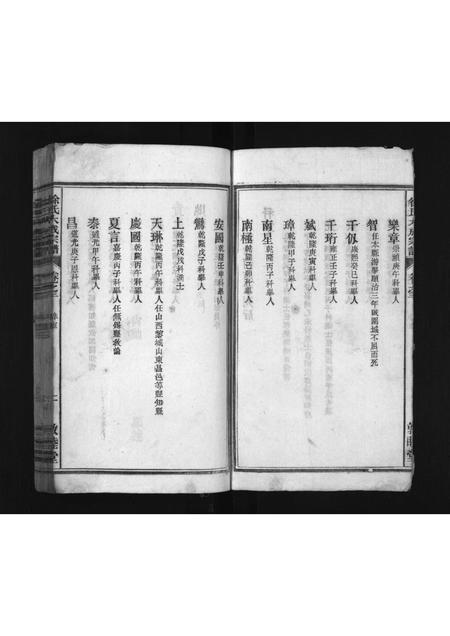 樂章崇禎庚午科舉人
智任本縣遊學順治三年賊圍城不屈而死
千仞康熙癸巳科舉人
千珩雍正壬子科舉人
斌乾隆庚寅科舉人
璋乾隆甲子科舉人
南星乾隆丙子科舉人
南極乾隆己卯科舉人
安國乾隆壬午科舉人
鸞乾隆丙子科舉人
上乾隆戊戌科進士
天琳乾隆丙午科舉人任山西黎城山東昌邑等縣知縣
慶國乾隆丙午科舉人
夏言嘉慶丙子科舉人任無錫縣教諭
泰道光甲午科舉人
昌道光庚子恩科舉人
徐氏大成宗譜
卷之三
敦睦堂